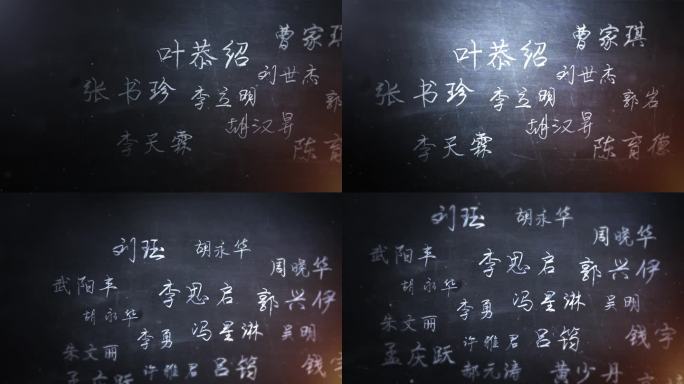 叶恭绍
曹家琪
刘世杰
张书珍
李立明
郭
胡汉昇
李天霖
陈育
叶恭绍
曹家琪
刘世杰
张书珍
李立明
郭岩
胡汉昇
李天霖
陈育德
刘珏
胡永华
周晓华
武阳丰
李思启
郭兴伊
胡永华
李勇
冯星淋
吴明
朱文丽
许雅君
吕筠
钱宇
孟庆跃
刘珏
胡永华
周晓华
武阳丰
李思启
郭兴伊
胡永华
李勇
冯星淋
吴明
朱文丽
许雅君
吕筠
钱宇
孟庆跃
郝元涛
黄少丹